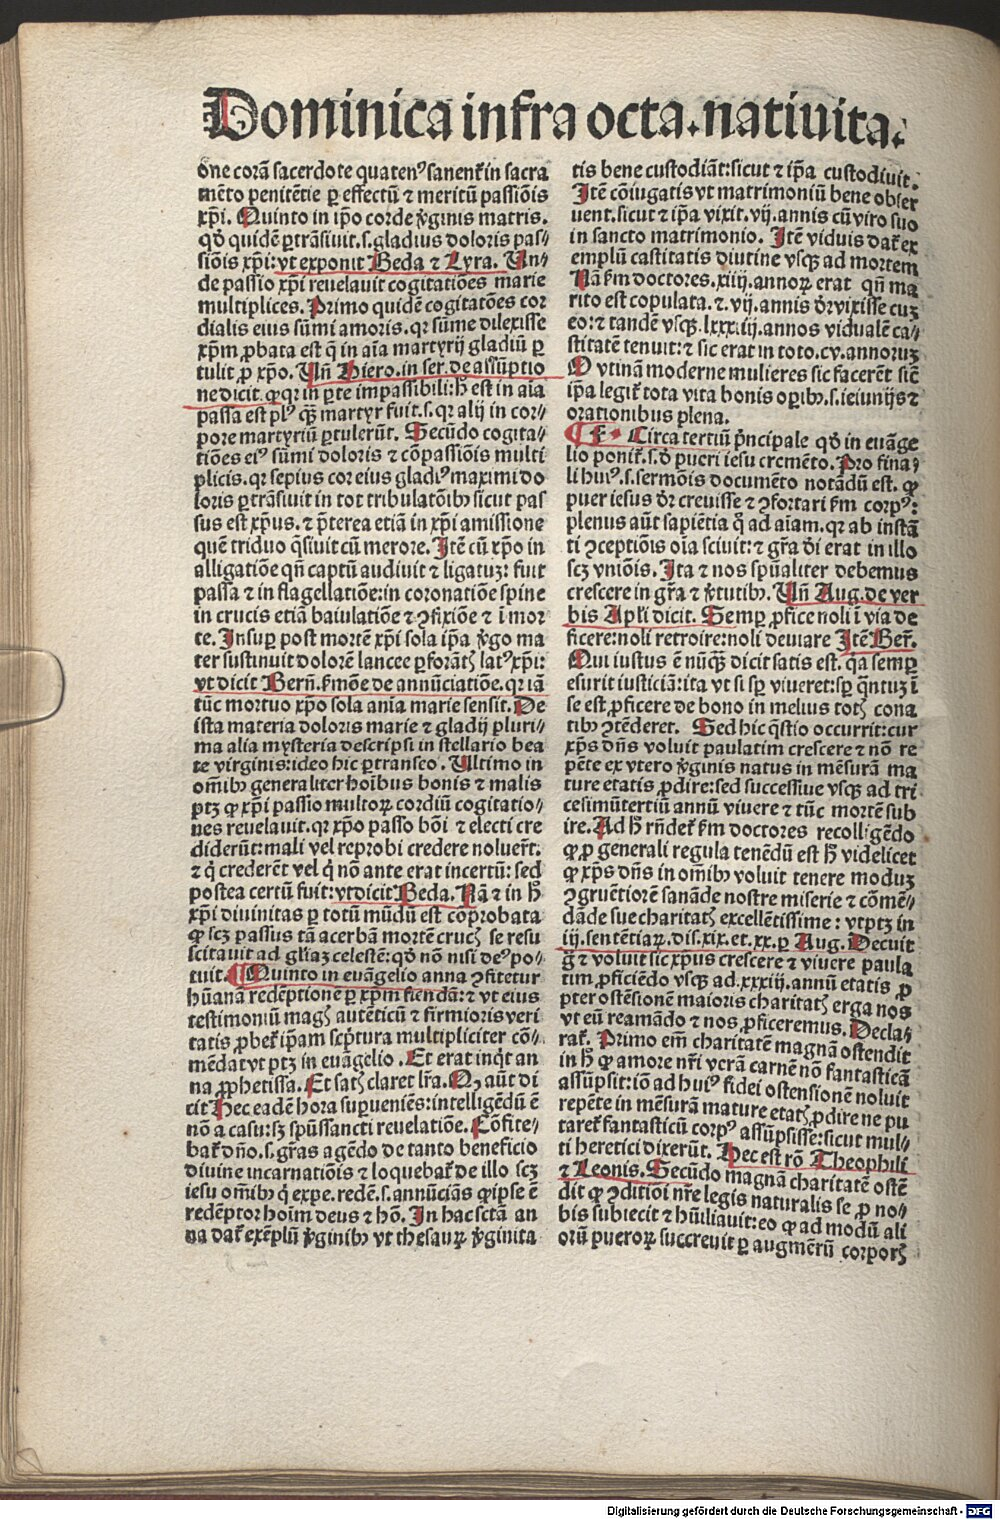 Dominica infra octa. natiuita.
one corā sacerdote quatenꝰ sanent᷑ in sacra
mēto penitētie ꝑ effectū ⁊ meritū passiōis
xp̄i. Quinto in ip̄o corde v̄ginis matris.
qd̄ quidē ꝑtrāsiuit .s. gladius doloris pas⸗
siōis xp̄i: vt exponit Beda ⁊ Lyra. Un⸗
de passio xp̄i reuelauit cogitatiōes marie
multiplices. Primo quidē cogitatōes cor
dialis eius sūmi amoris. qr sūme dilexisse
xp̄m ꝓbata est q̄ in aīa martyrij gladiū ꝑ
tulit ꝓ xp̄o. Un̄ Hiero. in ser. de assūptio
ne dicit. ꝙ qr in ꝑte impassibili: h̄ est in aīa
passa est plꝰ qꝫ martyr fuit .s. qr alij in cor⸗
pore martyriū ꝑtulerūt. Secūdo cogita⸗
tiōes eiꝰ sūmi doloris ⁊ cōpassiōis multi
plicis. qr sepius cor eius gladiꝰ maximi do
loris ꝑtrāsiuit in tot tribulatōibꝫ sicut pas
sus est xp̄us. ⁊ p̄terea etiā in xp̄i amissione
quē triduo q̄siuit cū merore. Itē cū xp̄o in
alligatiōe qn̄ captū audiuit ⁊ ligatuꝫ: fuit
passa ⁊ in flagellatiōe: in coronatiōe spine
in crucis etiā baiulatiōe ⁊ ꝯfixiōe ⁊ ī mor
te. Insuꝑ post mortē xp̄i sola ip̄a v̄go ma
ter sustinuit dolorē lancee ꝑforātꝭ latꝰ xp̄i:
vt dicit Bern̄. ẜmōe de annūciatiōe. qr iā
tūc mortuo xp̄o sola anīa marie sensit. De
ista materia doloris marie ⁊ gladij pluri⸗
ma alia mysteria descripsi in stellario bea
te virginis: ideo hic ꝑtranseo. Ultimo in
oīmbꝫ generaliter hoībus bonis ⁊ malis
ptꝫ ꝙ xp̄i passio multoꝝ cordiū cogitatio⸗
nes reuelauit. qr xp̄o passo bōi ⁊ electi cre
diderūt: mali vel reprobi credere noluer̄t.
⁊ q̄ crederēt vel q̄ nō ante erat incertū: sed
postea certū fuit: vt dicit Beda. Nā ⁊ in h̄
xp̄i diuinitas ꝑ totū mūdū est cōprobata
ꝙ scꝫ passus tā acerbā mortē crucꝭ se resu
scitauit ad gl̄iaꝫ celestē: qd̄ nō nisi deꝰ po⸗
tuit. ¶ Quinto in euāgelio anna ꝯfitetur
hūanā redēptionē ꝑ xp̄m fiendā: ⁊ vt eius
testimoniū magꝭ autēticū ⁊ firmioris veri
tatis ꝓbet᷑ ip̄am scp̄tura multipliciter cō⸗
mēdat vt ptꝫ in euāgelio. Et erat inq̄t an
na ꝓphetissa. Et satꝭ claret lr̄a. Qꝫ aūt di
cit Hec eadē hora superueniēs: intelligēdū ē
nō a casu: sꝫ spūssancti reuelatiōe. Cōfite⸗
bat᷑ dn̄o .s. gr̄as agēdo de tanto beneficio
diuine incarnatiōis ⁊ loquebat᷑ de illo scꝫ
iesu oīmbꝫ q̄ expe. redē. s. annūciās ꝙ ipse ē
redēptor hoīm deus ⁊ hō. In hac sctā an
na dat᷑ exēplū v̄ginibꝫ vt thesauꝝ v̄ginita
tis bene custodiāt: sicut ⁊ ip̄a custodiuit.
Itē cōiugatis vt matrimoniū bene obser
uent. sicut ⁊ ip̄a vixit .vij. annis cū viro suo
in sancto matrimonio. Itē viduis dat᷑ ex
emplū castitatis diutine vsqꝫ ad mortem
Nā ẜm doctores .xiiij. annoꝝ erat qn̄ ma
rito est copulata. ⁊ .vij. annis dr̄ vixisse cuꝫ
eo: ⁊ tandē vsqꝫ .lxxxiiij. annos vidualē ca⸗
stitatē tenuit: ⁊ sic erat in toto .cv. annoruꝫ
O vtinā moderne mulieres sic facerēt sicē
ip̄a legit᷑ tota vita bonis oꝑibꝫ .s. ieiunijs ⁊
orationibus plena.
¶ F. Circa tertiū p̄ncipale qd̄ in euāge
lio ponit᷑ .s. d̄ pueri iesu cremēto. Pro fina⸗
li huiꝰ .s. sermōis documēto notādū est. ꝙ
puer iesus dr̄ creuisse ⁊ ꝯfortari ẜm corpꝰ:
plenus aūt sapiētia q̄ ad aīam. qr ab instā
ti ꝯceptiōis oīa sciuit: ⁊ gr̄a dei erat in illo
scꝫ vniōis. Ita ⁊ nos spūaliter debemus
crescere in gr̄a ⁊ v̄tutibꝫ. Un̄ Aug. de ver
bis Apl̄i dicit. Semꝑ ꝓfice noli ī via de
ficere: noli retroire: noli deuiare Itē Ber̄.
Qui iustus ē nūqꝫ dicit satis est. qa semꝑ
esurit iusticiā: ita vt si sꝑ viueret: sꝑ q̄ntuꝫ ī
se est ꝓficere de bono in melius totꝭ cona
tibꝫ ꝯtēderet. Sed hic q̄stio occurrit: cur
xp̄s dn̄s voluit paulatim crescere ⁊ nō re
pēte ex vtero v̄ginis natus in mēsurā ma
ture etatis ꝓdire: sed successiue vsqꝫ ad tri
cesimūtertiū annū viuere ⁊ tūc mortē sub
ire. Ad h̄ rn̄det᷑ ẜm doctores recolligēdo
ꝙ ꝓ generali regula tenēdū est h̄ videlicet
ꝙ xp̄s dn̄s in oīmbꝫ voluit tenere moduꝫ
ꝯgruētiorē sanāde nostre miserie ⁊ cōmē⸗
dāde sue charitatꝭ excellētissime: vt ptꝫ in
iij. sentētiaꝝ. dis. xix. et. xx. ꝑ Aug. Decuit
g̊ ⁊ voluit sic xp̄us crescere ⁊ viuere paula
tim ꝓficiēdo vsqꝫ ad .xxxiij. annū etatis ꝓ
pter ostēsionē maioris charitatꝭ erga nos
vt eū reamādo ⁊ nos ꝓficeremus. Decla⸗
rat᷑. Primo em̄ charitatē magnā ostendit
in h̄ ꝙ amore nr̄i verā carnē nō fantasticā
assūpsit: iō ad huiꝰ fidei ostensionē noluit
repēte in mēsurā mature etatꝭ ꝓdire ne pu
taret᷑ fantasticū corpꝰ assūpsisse: sicut mul⸗
ti heretici dixerūt. Hec est rō Theophili
⁊ Leonis. Secūdo magnā charitatē ostē
dit ꝙ ꝯditiōi nr̄e legis naturalis se ꝓ no⸗
bis subiecit ⁊ hūiliauit: eo ꝙ ad modū ali
orū pueroꝝ succreuit ꝑ augmētū corporꝭ
Digitalisierung gefördert durch die Deutsche Forschungsgemeinschaft - DFG